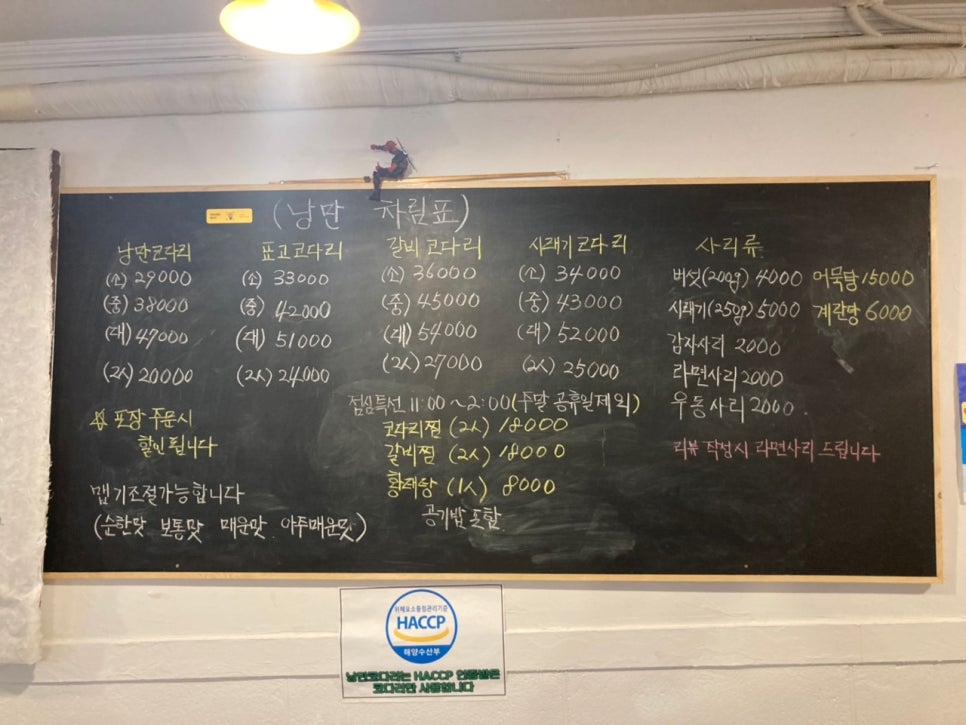 (낭만 차림표)
낭만코다리
(소) 29000
(중) 38000
(대) 47000
(2人) 20000
표고코다리
(소) 33000
(중) 42000
(대) 51000
(2人) 24000
갈비코다리
(소) 36000
(중) 45000
(대) 54000
(2人) 27000
시래기코다리
(소) 34000
(중) 43000
(대) 52000
(2人) 25000
사리류
버섯(200g) 4000
시래기(250g) 5000
감자사리 2000
라면사리 2000
우동사리 2000
어묵탕 15000
계란탕 6000
리뷰 작성시 라면사리 드립니다
점심특선 11:00 ~ 2:00 (주말 공휴일제외)
코다리찜 (2人) 18000
갈비찜 (2人) 18000
황태탕 (1人) 8000
공기밥 포함
포장 주문시
할인 됩니다
맵기조절가능합니다
(순한맛 보통맛 매운맛 아주매운맛)
위해요소중점관리기준
HACCP
해양수산부
낭만코다리는 HACCP 인증받은
코다리만 사용합니다